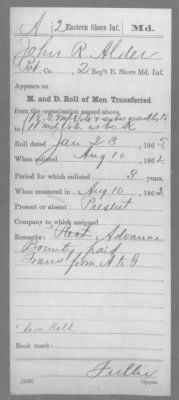 A 2 Eastern Shore Inf. Md.
John R. Alder
Pvt, Co. , 2 Reg't E. Shore Md. Inf.
Appears on
M. and D. Roll of Men Transferred
from the organization named above,
to
Roll dated Jan 23, 186
When enlisted Aug 10, 186
Period for which enlisted 3 years.
When mustered in Aug 10, 1862
Present or absent Present
Company to which assigned
Remarks: Advance
Bounty paid
Trans from A to G
Roll
Book mark:
Fuller
Copyist.